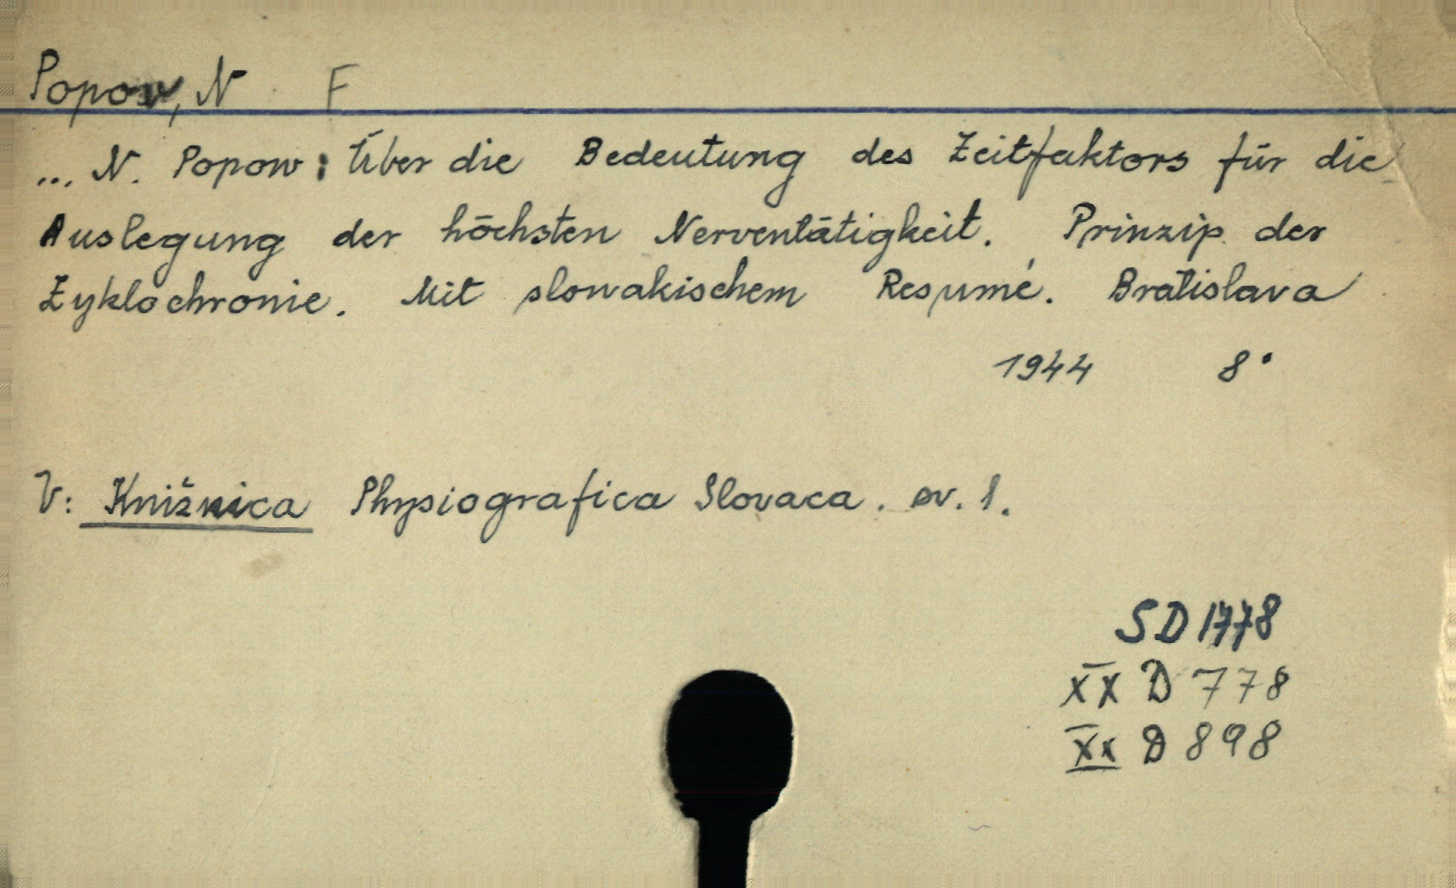 Popow, N F
... N. Popow: Über die Bedeutung des Zeitfaktors für die
Auslegung der höchsten Nerventätigkeit. Prinzip der
Zyklochronie. Mit slowakischem Resumé. Bratislava
1944 8°
V: Knižnica Physiografica Slovaca. sv. 1.
SD 1778
XX D 778
XX D 898